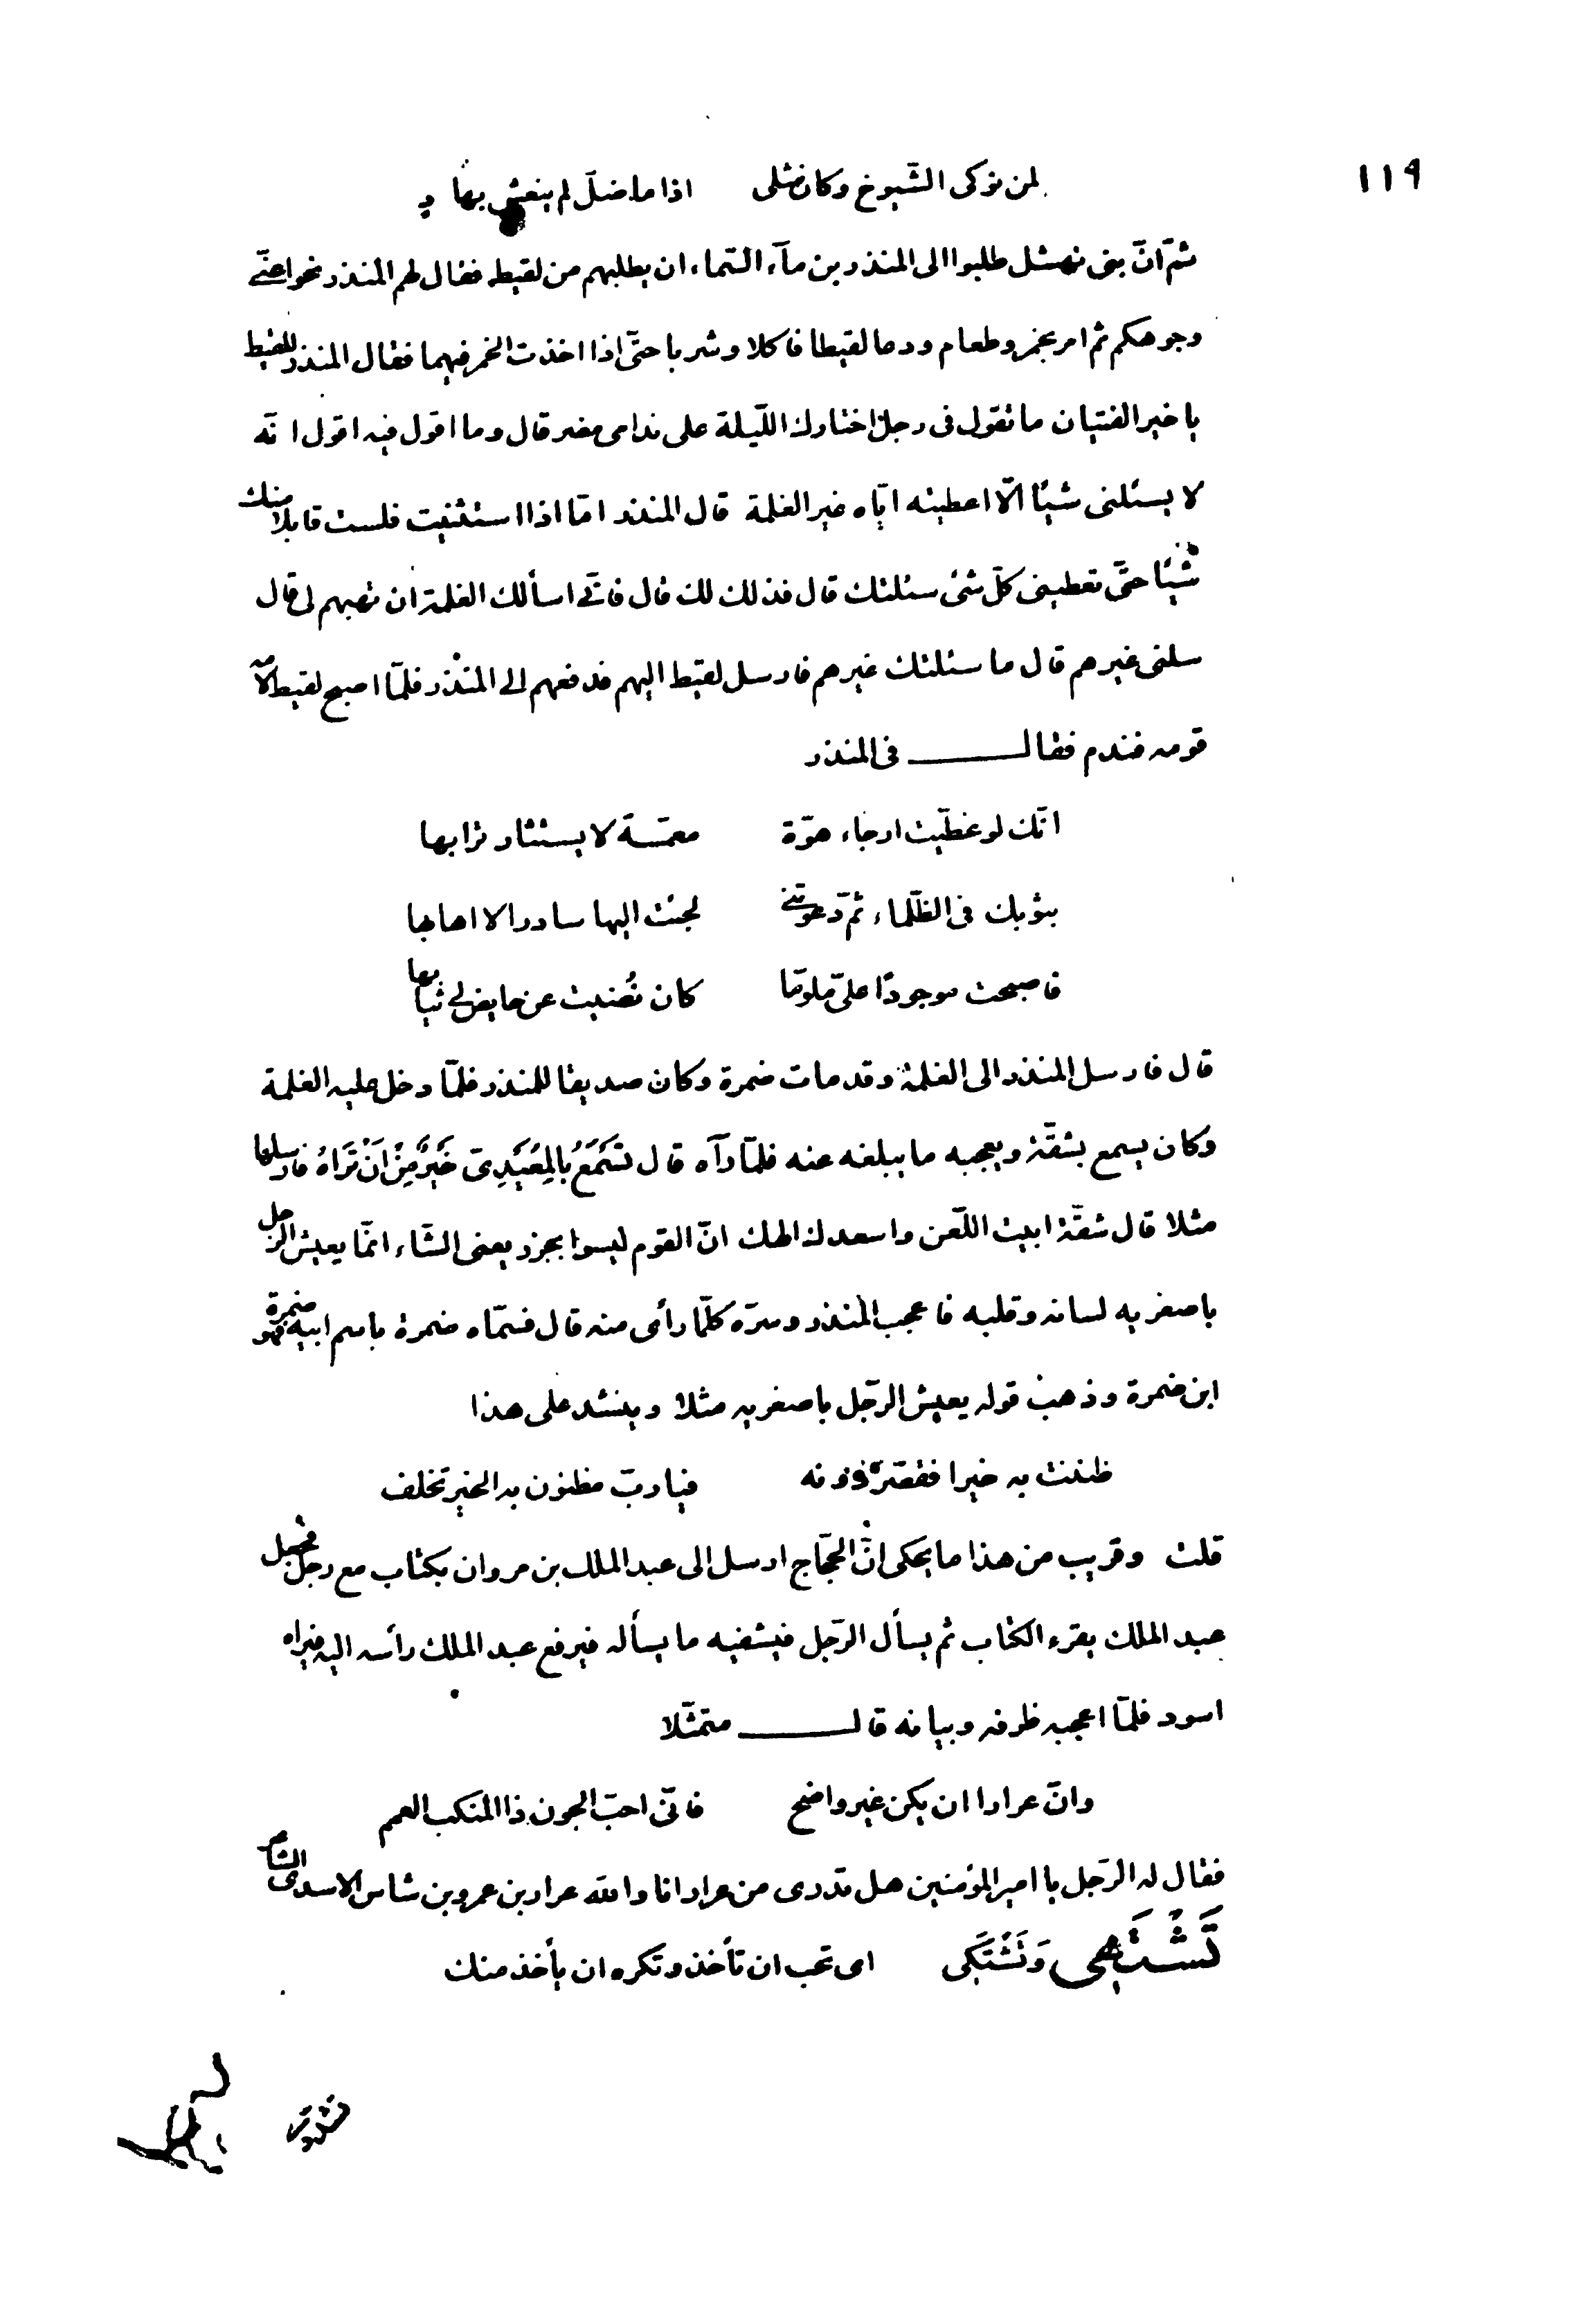 ١١٩
لمن نوكى الشّيوخ وكان مثلى اذا ما ضلّ لم ينعش بها د
ثمّ انّ بنى نهشل طلبوا الى المنذر بن مآء السّماء ان يطلبهم من لقيط فقال لهم المنذر نحوا عنّى
وجوهكم ثم امر بخمر وطعام ودعا لقيطا فاكلا وشربا حتّى اذا اخذت الخمر فيهما فقال المنذر للقيط
يا خير الفتيان ما تقول فى رجل اختارك اللّيلة على ندامى مضر قال وما اقول فيه اقول انّه
لا يسئلنى شيئا الّا اعطيته ايّاه غير الغلمة قال المنذر امّا اذا استثنيت فلست قابلا منك
شيئا حتّى تعطينى كلّ شئ سئلتك قال فذلك لك قال فانّى اسألك الغلمة ان تهبهم لى قال
سلنى غيرهم قال ما سئلتك غيرهم فارسل لقيط اليهم فدفعهم الى المنذر فلمّا اصبح لقيط لامه
قومه فندم فقال فى المنذر
انّك لو غطّيت ارجاء هوّة معمّسة لا يستثار ترابها
بثوبك فى الظّلماء ثمّ دعوتنى لجئت اليها سادرا لا اهابها
فاصبحت موجودًا علىّ ملوّما كان نُضيت عن حايض لى ثيابها
قال فارسل المنذر الى الغلمة وقد مات ضمرة وكان صديقا للمنذر فلمّا دخل عليه الغلمة
وكان يسمع بشقّة ويعجبه ما يبلغه عنه فلمّا رآه قال تَسْمَعُ بِالمُعَيْدِىّ خَيْرٌ مِنْ اَنْ تَرَاهُ فارسلها
مثلا قال شقّة ابيت اللّعن واسعدك الهك انّ القوم ليسوا بجزر يعنى الشّاء انمّا يعيش الرّجل
باصغريه لسانه وقلبه فاعجب المنذر وسرّه كلّما رأى منه قال فسمّاه ضمرة باسم ابيه فهو ضمرة
ابن ضمرة وذهب قوله يعيش الرّجل باصغريه مثلا وينشد على هذا
ظننت به خيرا فقصّر دونه فيا ربّ مظنون به الخير تخلف
قلت وقريب من هذا ما يحكى انّ الحجّاج ارسل الى عبد الملك بن مروان بكتاب مع رجل فجعل
عبد الملك يقرء الكتاب ثم يسأل الرّجل فيشفيه ما يسأله فيرفع عبد الملك رأسه اليه فيراه
اسود فلمّا اعجبه ظرفه وبيانه قال متمثّلا
وانّ عرارا ان يكن غير واضح فانّى احبّ الجون ذا المنكب العمم
فقال له الرّجل يا امير المؤمنين هل تدرى من عرار انا والله عرار بن عمرو بن شاس الاسدى الشّاعر
تَشْتَهِى وَتَشْتَكِى اى تحب ان تأخذ وتكره ان يأخذ منك